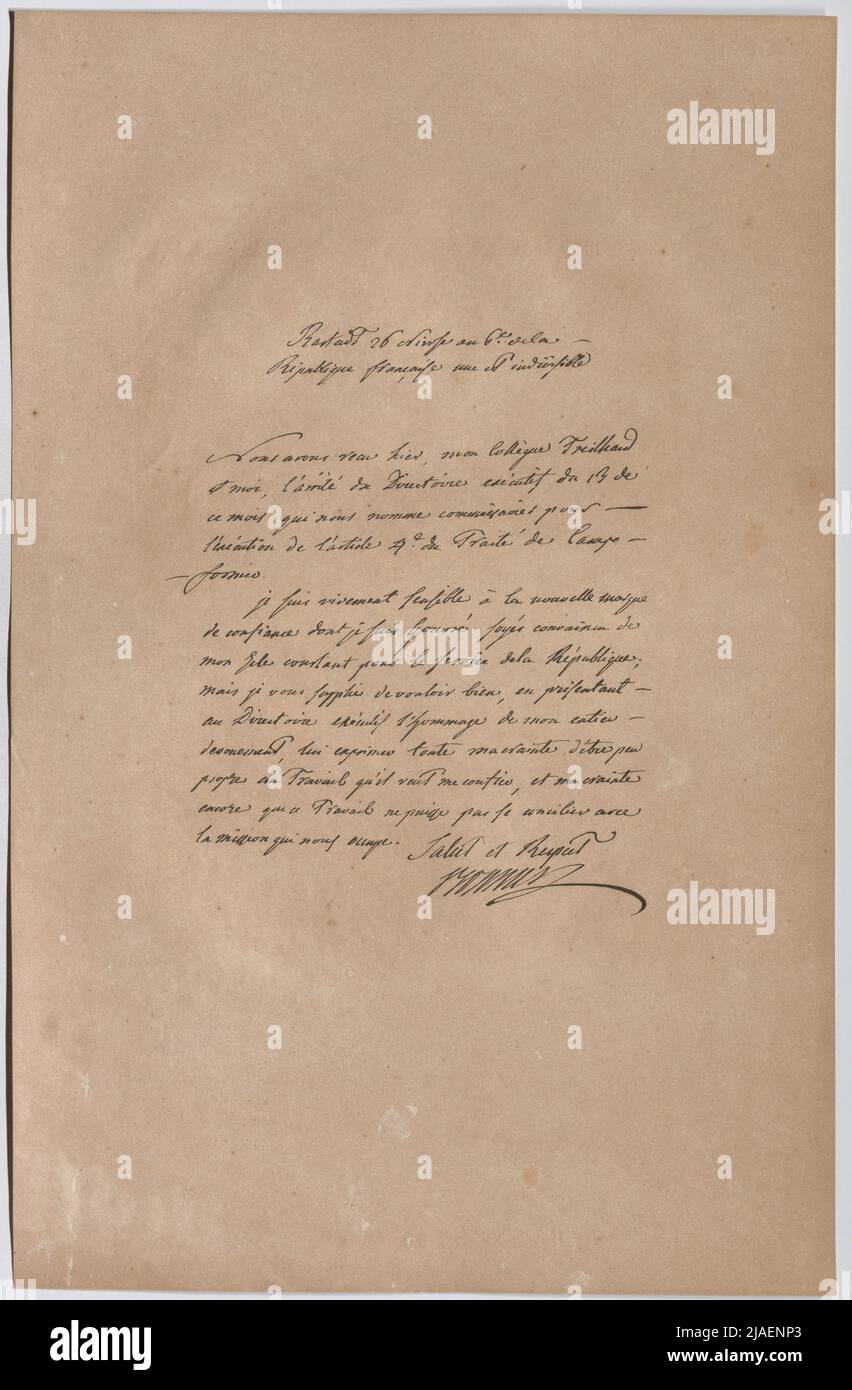 Rastadt 26 Nivose an 6.e de la —
République française une et indivisible
Nous avons recu hier, mon Collègue Treilhard
et moi, l'arrêté du Directoire exécutif du 13 de
ce mois qui nous nomme commissaires pour —
l'exécution de l'article 4.e du Traité de Campo —
— formio.
je suis vivement sensible à la nouvelle marque
de confiance dont je suis honoré. soyés convaincu de
mon zele constant pour le service de la République;
mais je vous supplie de vouloir bien, en présentant —
au Directoire exécutif l'hommage de mon entier —
devouement, lui exprimer toute ma crainte d'être peu
propre au Travail qu'il veut me confier, et ma crainte
encore que ce Travail ne puisse pas se concilier avec
la mission qui nous occupe.
Salut et Respect
alamy
alamy
alamy
a
a
a
a
a
a
a
a
a
a
a
a
a
a
alamy
Image ID: 2JAENP3
www.alamy.com